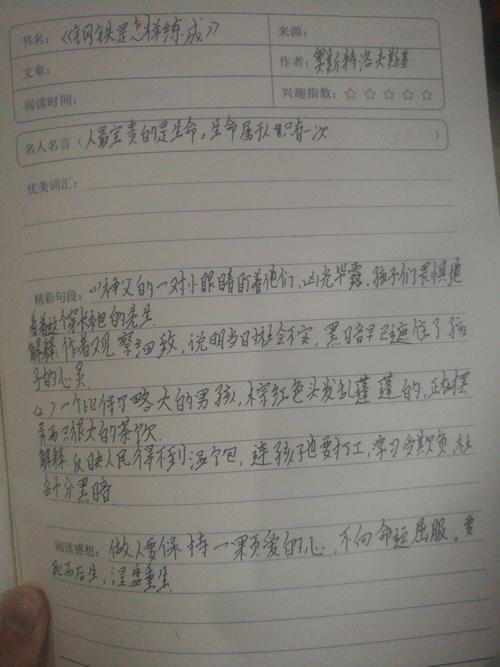 书名：《钢铁是怎样练成》
来源：
文章：
作者：奥斯特洛夫斯基
阅读时间：
兴趣指数：☆☆☆☆☆
名人名言（人最宝贵的是生命，生命属于人只有一次 ）
优美词汇：
精彩句段：(1)神父的一对小眼睛盯着他们，凶光毕露，孩子们畏惧地
看着这个穿长袍的先生
解释 作者观察细致，说明当日社会不安，黑暗早已遮住了孩
子的心灵
(2) 一个比保尔略大的男孩，棕红色头发乱蓬蓬的，正在摆
弄两只很大的茶饮
解释 反映人民得不到温饱，连孩子也要打工，学习 社
会十分黑暗
阅读感想：做人要保持一颗爱的心，不向命运屈服，要
死而后生，涅盘重生